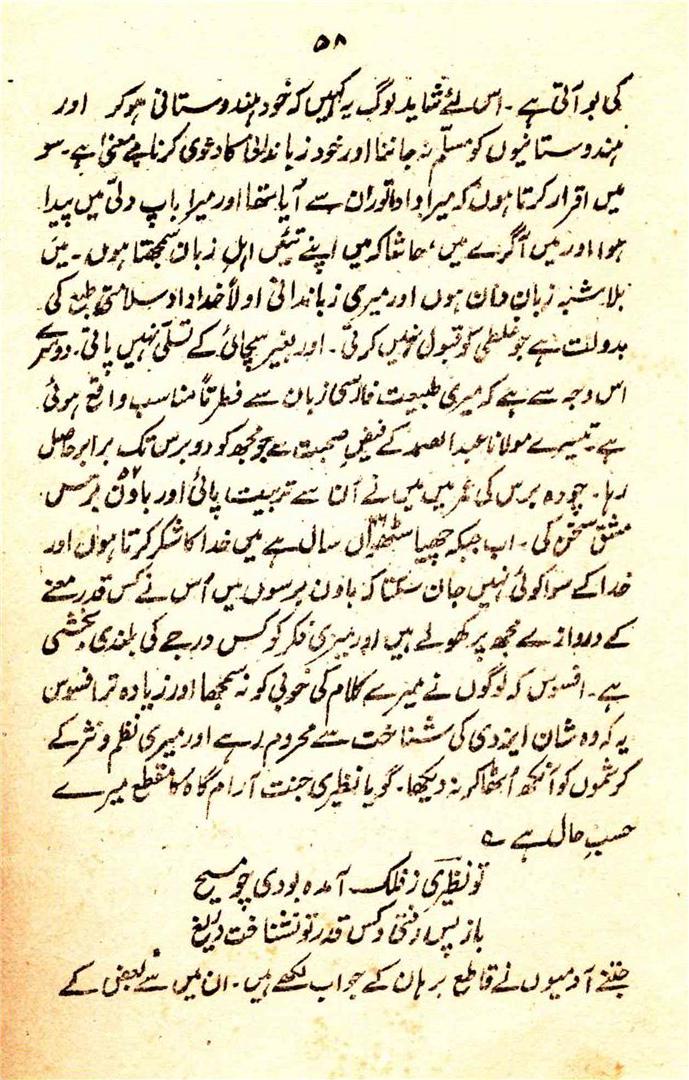 ۵۸
کی بو آتی ہے ۔ اس لئے شاید لوگ یہ کہیں کہ خود ہندوستانی ہوکر اور
ہندوستانیوں کو مسلّم نہ جاننا اور خود زباندانی کا دعویٰ کرنا بے معنیٰ ہے ۔ سو
میں اقرار کرتا ہوں کہ میرا دادا توران سے آیا تھا اور میرا باپ دلّی میں پیدا
ہوا اور میں آگرے میں ، حاشا کہ میں اپنے تئیں اہلِ زبان سمجھتا ہوں ۔ میں
بلا شبہ زبان دان ہوں اور میری زباندانی اولاً خداداد سلامتیِ طبع کی
بدولت ہے جو غلطی کو قبول نہیں کرتی ۔ اور بغیر سچائی کے تسلّی نہیں پاتی ۔ دوسرے
اس وجہ سے ہے کہ میری طبیعت فارسی زبان سے فطرتاً مناسب واقع ہوئی
ہے ۔ تیسرے مولانا عبدالصمد کے فیضِ صحبت سے جو مجھ کو دو برس تک برابر حاصل
رہا ۔ چودہ برس کی عمر میں میں نے اُن سے تربیت پائی اور باون ۵۲ برس
مشقِ سخن کی ۔ اب جبکہ چھیاسٹھواں ۶۶ سال ہے میں خدا کا شکر کرتا ہوں اور
خدا کے سوا کوئی نہیں جان سکتا کہ باون برسوں میں اُس نے کس قدر معنے
کے دروازے مجھ پر کھولے ہیں اور میری فکر کو کس درجے کی بلندی بخشی
ہے ۔ افسوس کہ لوگوں نے میرے کلام کی خوبی کو نہ سمجھا اور زیادہ تر افسوس
یہ کہ وہ شانِ ایزدی کی شناخت سے محروم رہے اور میری نظم و نثر کے
کرشموں کو آنکھ اُٹھا کر نہ دیکھا ۔ گویا نظیری جنت آرام گاہ کا مقطع میرے
حسبِ حال ہے ؎
تو نظیریؔ ز فلک آمدہ بودی چو مسیح
باز پس رفتی و کس قدر تو نشناخت دریغ
جتنے آدمیوں نے قاطع برہان کے جواب لکھے ہیں ۔ ان میں سے بعض کے